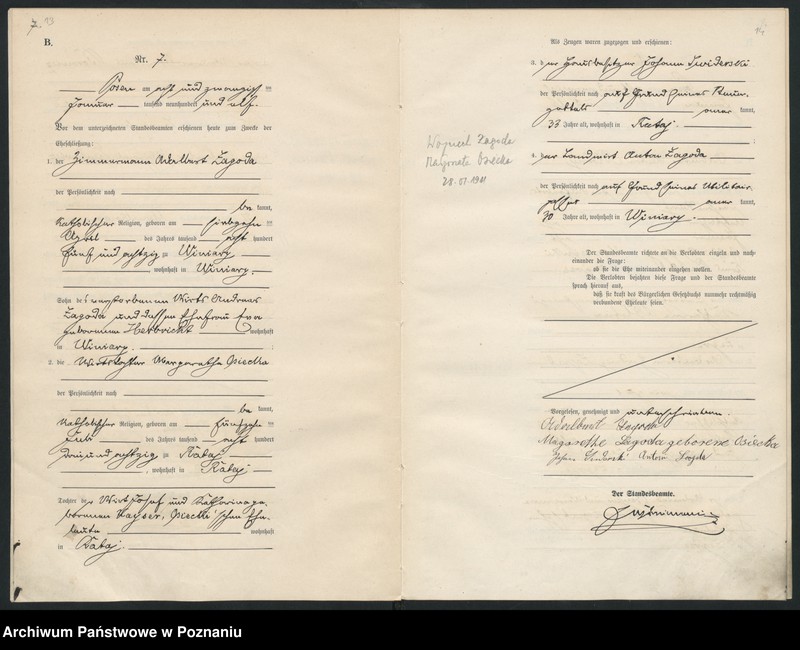 7.
B.
Nr. 7.
Posen am acht und zwanzigsten
Januar tausend neunhundert und elf.
Vor dem unterzeichneten Standesbeamten erschienen heute zum Zwecke der
Eheschließung:
1. der Zimmermann Adalbert Zagoda
der Persönlichkeit nach
be kannt,
katholischer Religion, geboren am siebzehnten
April des Jahres tausend acht hundert
fünf und achtzig zu Winiary
, wohnhaft in Winiary.
Sohn des verstorbenen Wirts Andreas
Zagoda und dessen Ehefrau Eva
geborenen Herbricht wohnhaft
in Winiary.
2. die Wirtstochter Margarethe Osiecka
der Persönlichkeit nach
be kannt,
katholischer Religion, geboren am fünfzehnten
Juli des Jahres tausend acht hundert
drei und achtzig zu Rataj
, wohnhaft in Rataj
Tochter der Wirt Josef und Katharina ge-
borenen Kayser, Osiecki'schen Ehe-
leute wohnhaft
in Rataj.
Als Zeugen waren zugezogen und erschienen:
3. der Hausbesitzer Johann Swiderski
der Persönlichkeit nach auf Grund seines
kannt,
33 Jahre alt, wohnhaft in Rataj.
4. der Landwirt Anton Zagoda
der Persönlichkeit nach auf Grund seines Militär-
passes kannt,
30 Jahre alt, wohnhaft in Winiary.
Wojciech Zagoda
Małgorzata Osiecka
28.01.1911
Der Standesbeamte richtete an die Verlobten einzeln und nach-
einander die Frage:
ob sie die Ehe miteinander eingehen wollen.
Die Verlobten bejahten diese Frage und der Standesbeamte
sprach hierauf aus,
daß sie kraft des Bürgerlichen Gesetzbuchs nunmehr rechtmäßig
verbundene Eheleute seien.
Vorgelesen, genehmigt und unterschrieben.
Adalbert Zagoda
Margarethe Zagoda geborene Osiecka
Johann Swiderski Anton Zagoda
Der Standesbeamte.
Archiwum Państwowe w Poznaniu